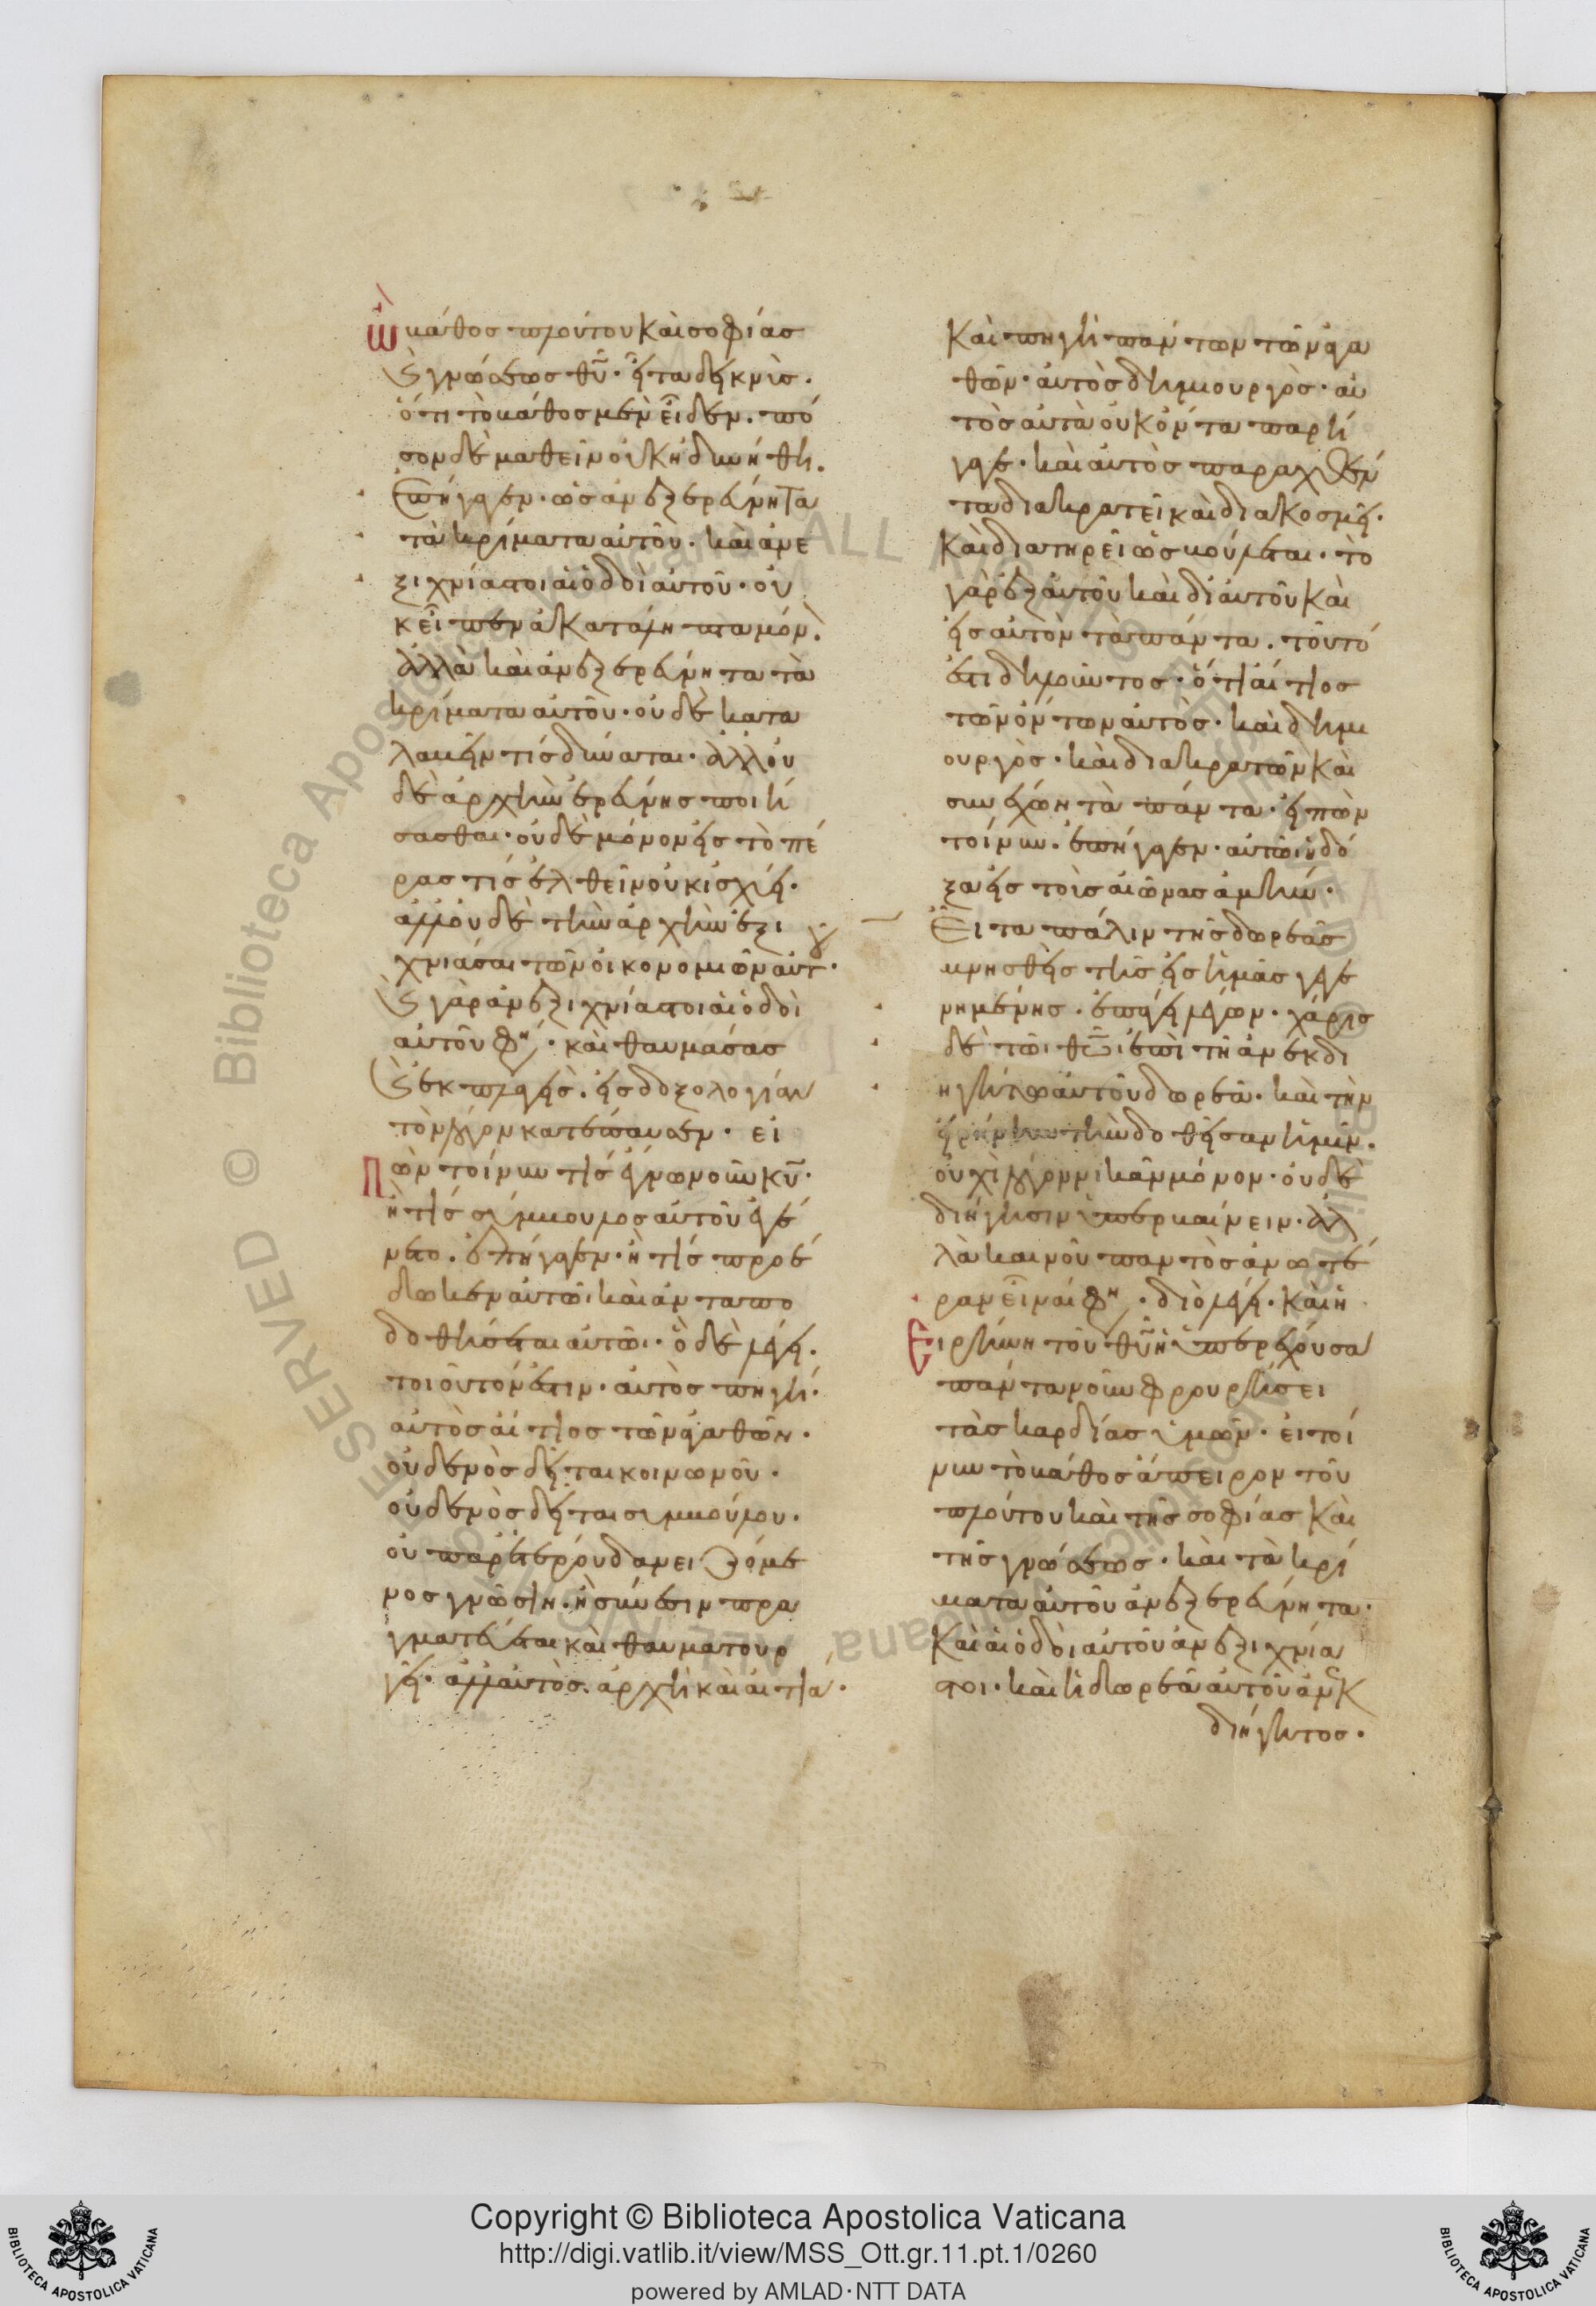 ὦ βάθος πλούτου καὶ σοφίας
καὶ γνώσεως θυ. εἶτα δεικνὺς.
ὅτι τὸ βάθος μὲν εἶδεν. πό
σον δὲ μαθεῖν οὐκ ἠδυνήθη.
ἐπήγαγεν. ὡς ἀνεξερεύνητα
τὰ κρίματα αὐτοῦ. καὶ ἀνε
ξιχνίαστοι αἱ ὁδοὶ αὐτοῦ. οὐ
κ εἶπεν ἀκατάληπτα μόν.
ἀλλὰ καὶ ἀνεξερεύνητα τὰ
κρίματα αὐτοῦ. οὐδὲ κατα
λαβεῖν τίς δύναται. ἀλλ' οὐ
δὲ ἀρχὴν ἐρεύνης ποιή
σασθαι. οὐδὲ μόνον εἰς τὸ πέ
ρας τίς ἐλθεῖν οὐκ ἰσχύει.
ἀλλ' οὐδὲ τὴν ἀρχὴν ἐξι
χνιάσαι τῶν οἰκονομιῶν αὐτ.
καὶ γὰρ ἀνεξιχνίαστοι αἱ ὁδοὶ
αὐτοῦ φη. καὶ θαυμάσας
καὶ ἐκπλαγεὶς. εἰς δοξολογίαν
τὸν λόγον κατέπαυσεν. εἰ
πὼν τοίνυν τίς ἔγνω νοῦν κυ.
ἢ τίς σύμβουλος αὐτοῦ ἐγέ
νετο. ἐπήγαγεν. ἢ τίς προέ
δωκεν αὐτῷ καὶ ἀνταπο
δοθήσεται αὐτῷ. ὃ δὲ λέγει.
τοιοῦτόν ἐστιν. αὐτὸς πηγή.
αὐτὸς αἴτιος τῶν ἀγαθῶν.
οὐδενὸς δεῖται κοινωνοῦ.
οὐδενὸς δεῖται συμβούλου.
οὐ παρ' ἑτέρου δανειζόμε
νος γνῶσιν. ἢ σύνεσιν πρα
γματεύεται καὶ θαυματουρ
γεῖ. ἀλλ' αὐτὸς ἀρχὴ καὶ αἰτία.
καὶ πηγὴ πάντων τῶν ἀγα
θῶν. αὐτὸς δημιουργὸς. αὐ
τὸς αὐτὰ οὐκ ὄντα παρή
γαγε. καὶ αὐτὸς παραχθέν
τα διακρατεῖ καὶ διακοσμεῖ.
καὶ διατηρεῖ ὡς βούλεται. τὸ
γὰρ ἐξ αὐτοῦ καὶ δι' αὐτοῦ καὶ
εἰς αὐτὸν τὰ πάντα. τοῦτό
ἐστι δηλοῦντος. ὅτι αἴτιος
τῶν ὄντων αὐτὸς. καὶ δημι
ουργὸς. καὶ διακρατῶν καὶ
συνέχων τὰ πάντα. εἰπὼν
τοίνυν. ἐπήγαγεν. αὐτῷ ἡ δό
ξα εἰς τοὺς αἰῶνας ἀμήν.
Εἶτα πάλιν τῆς δωρεᾶς
μνησθεὶς τῆς εἰς ἡμᾶς γεγε
νημένης. ἐπάγει λέγων. χάρις
δὲ τῷ θῶ ἐπὶ τῇ ἀνεκδι
ηγήτῳ αὐτοῦ δωρεᾷ. καὶ τὴν
εἰρήνην τὴν δοθεῖσαν ἡμῖν.
οὐχὶ λόγον νικᾶν μόνον. οὐδὲ
διήγησιν ὑπερβαίνειν. ἀλ
λὰ καὶ νοῦ παντὸς ἀνωτέ
ραν εἶναί φη. διὸ λέγει. καὶ ἡ
Εἰρήνη τοῦ θυ ἡ ὑπερέχουσα
πάντα νοῦν φρουρήσει
τὰς καρδίας ὑμῶν. εἰ τοί
νυν τὸ βάθος ἄπειρον τοῦ
πλούτου καὶ τῆς σοφίας καὶ
τῆς γνώσεως. καὶ τὰ κρί
ματα αὐτοῦ ἀνεξερεύνητα.
καὶ αἱ ὁδοὶ αὐτοῦ ἀνεξιχνία
στοι. καὶ ἡ δωρεὰ αὐτοῦ ἀνεκ
διήγητος.
Copyright © Biblioteca Apostolica Vaticana
http://digi.vatlib.it/view/MSS_Ott.gr.11.pt.1/0260
powered by AMLAD·NTT DATA